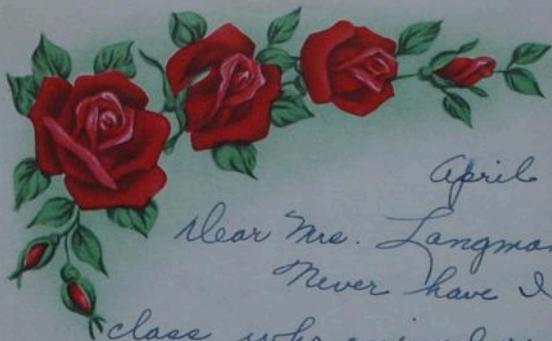 April
Dear Mrs. Langman
Never have I
class who enjoyed